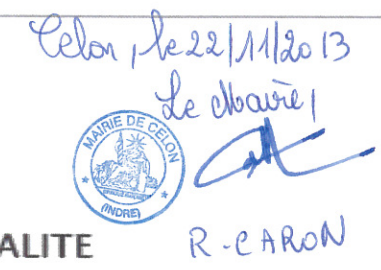 Celon, le 22/11/2013
Le Maire,
MAIRIE DE CELON
(INDRE)
ALITE
R-CARON